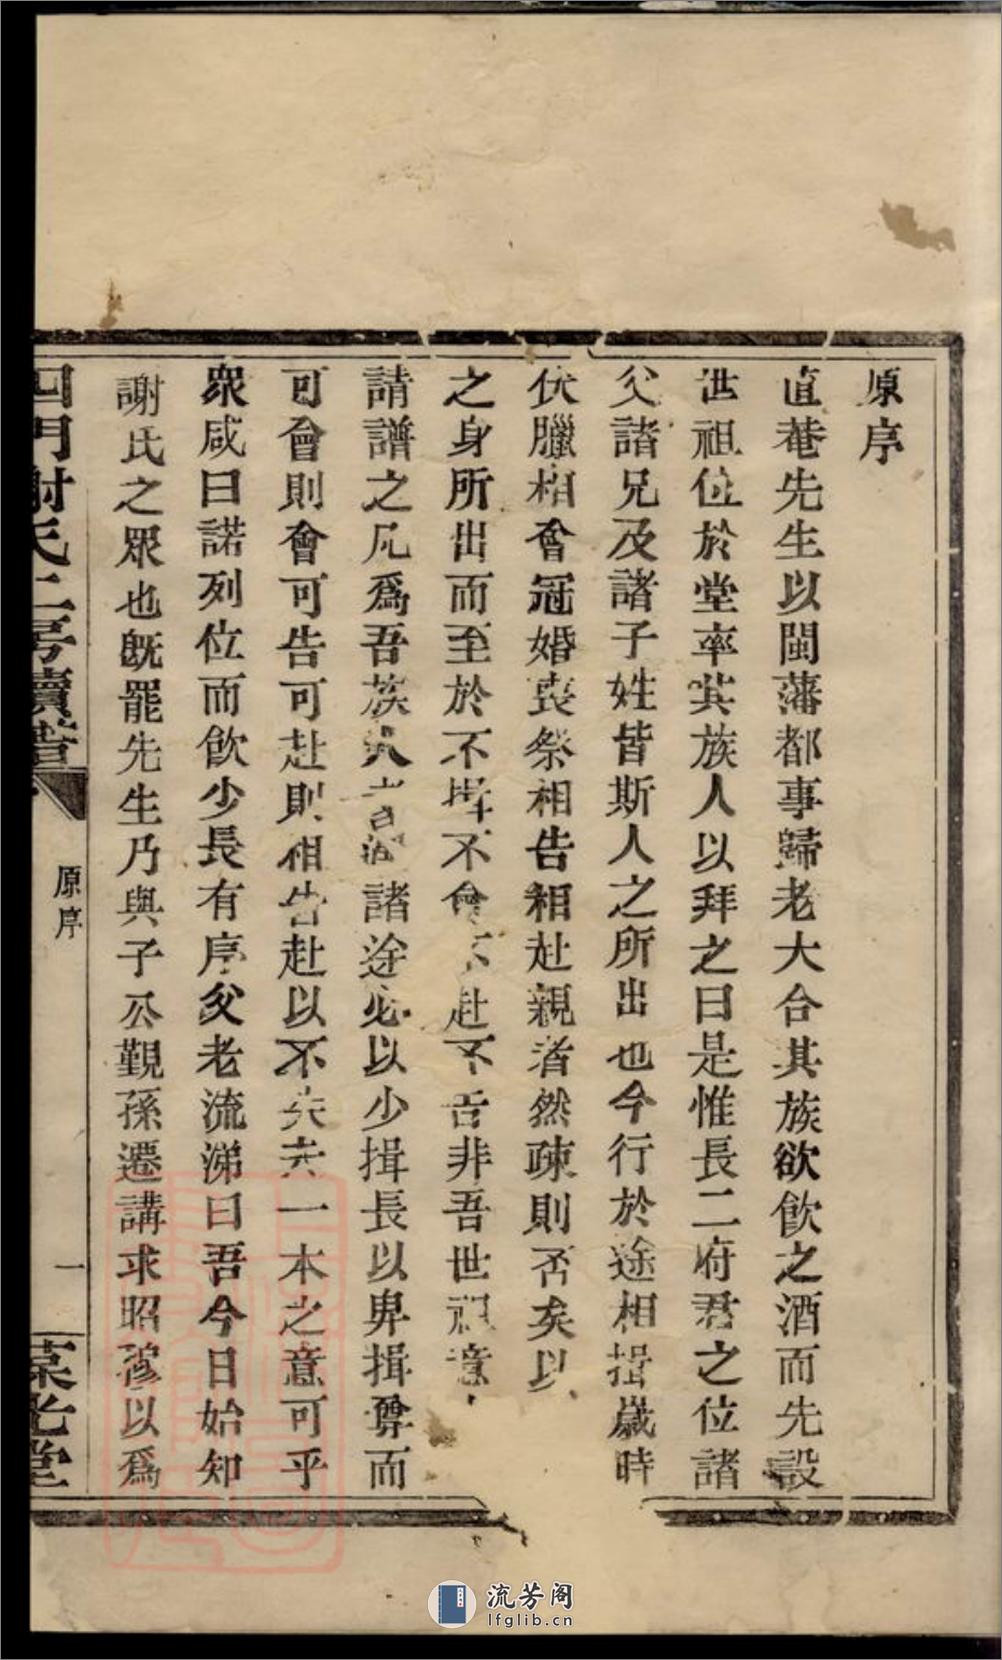 原序
直菴先生以閩藩都事歸老大合其族欲飲之酒而先設
世祖位於堂率其族人以拜之曰是惟長二府君之位諸
父諸兄及諸子姓皆斯人之所出也今行於途相揖歲時
伏臘相會冠婚喪祭相告相赴親者然疎則否矣以
之身所出而至於不揖不會不赴不告非吾世祖意
請譜之凡爲吾族人者遇諸途必以少揖長以卑揖尊而
可會則會可告可赴則相告赴以不失一本之意可乎
衆咸曰諾列位而飲少長有序父老流涕曰吾今日始知
謝氏之眾也既罷先生乃與子公覲孫遷講求昭穆以爲
四門謝氏二房續譜
原序
一
堂
流芳阁
lfglib.cn